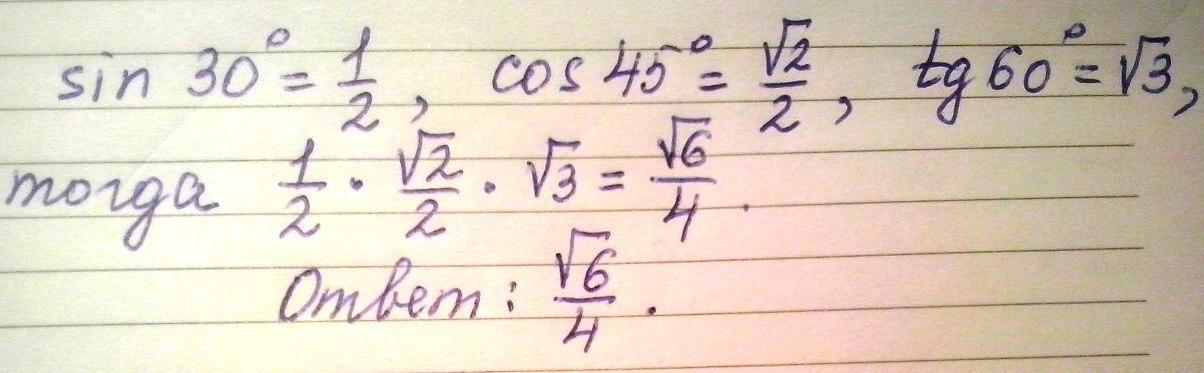 sin 30° = 1/2, cos 45° = √2/2, tg 60° = √3,
тогда 1/2 · √2/2 · √3 = √6/4.
Ответ: √6/4.